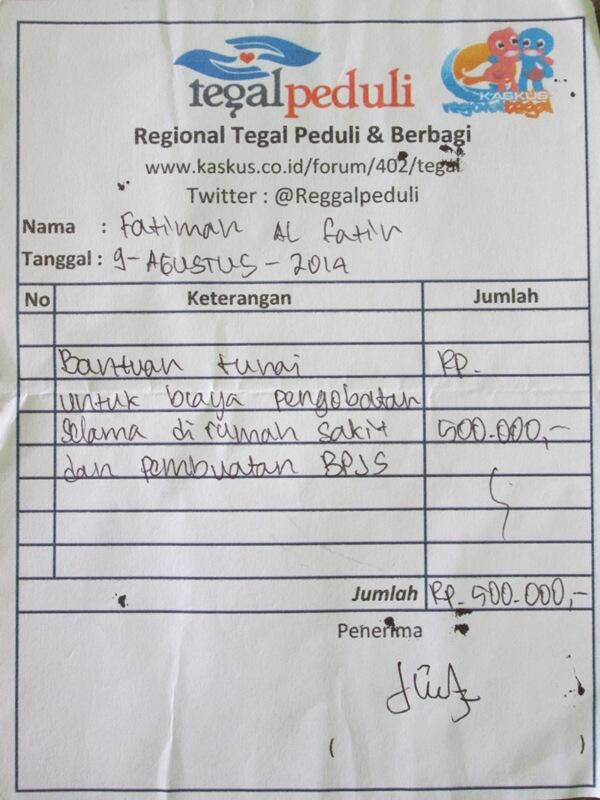 tegalpeduli
KASKUS
regional tegal
Regional Tegal Peduli & Berbagi
www.kaskus.co.id/forum/402/tegal
Twitter : @Reggalpeduli
Nama : Fatimah AL Fatih
Tanggal : 9-AGUSTUS-2014
No Keterangan Jumlah
Bantuan tunai Rp.
untuk biaya pengobatan
Selama di rumah sakit 500.000,-
dan pembuatan BPJS
Jumlah Rp. 500.000,-
Penerima
( )